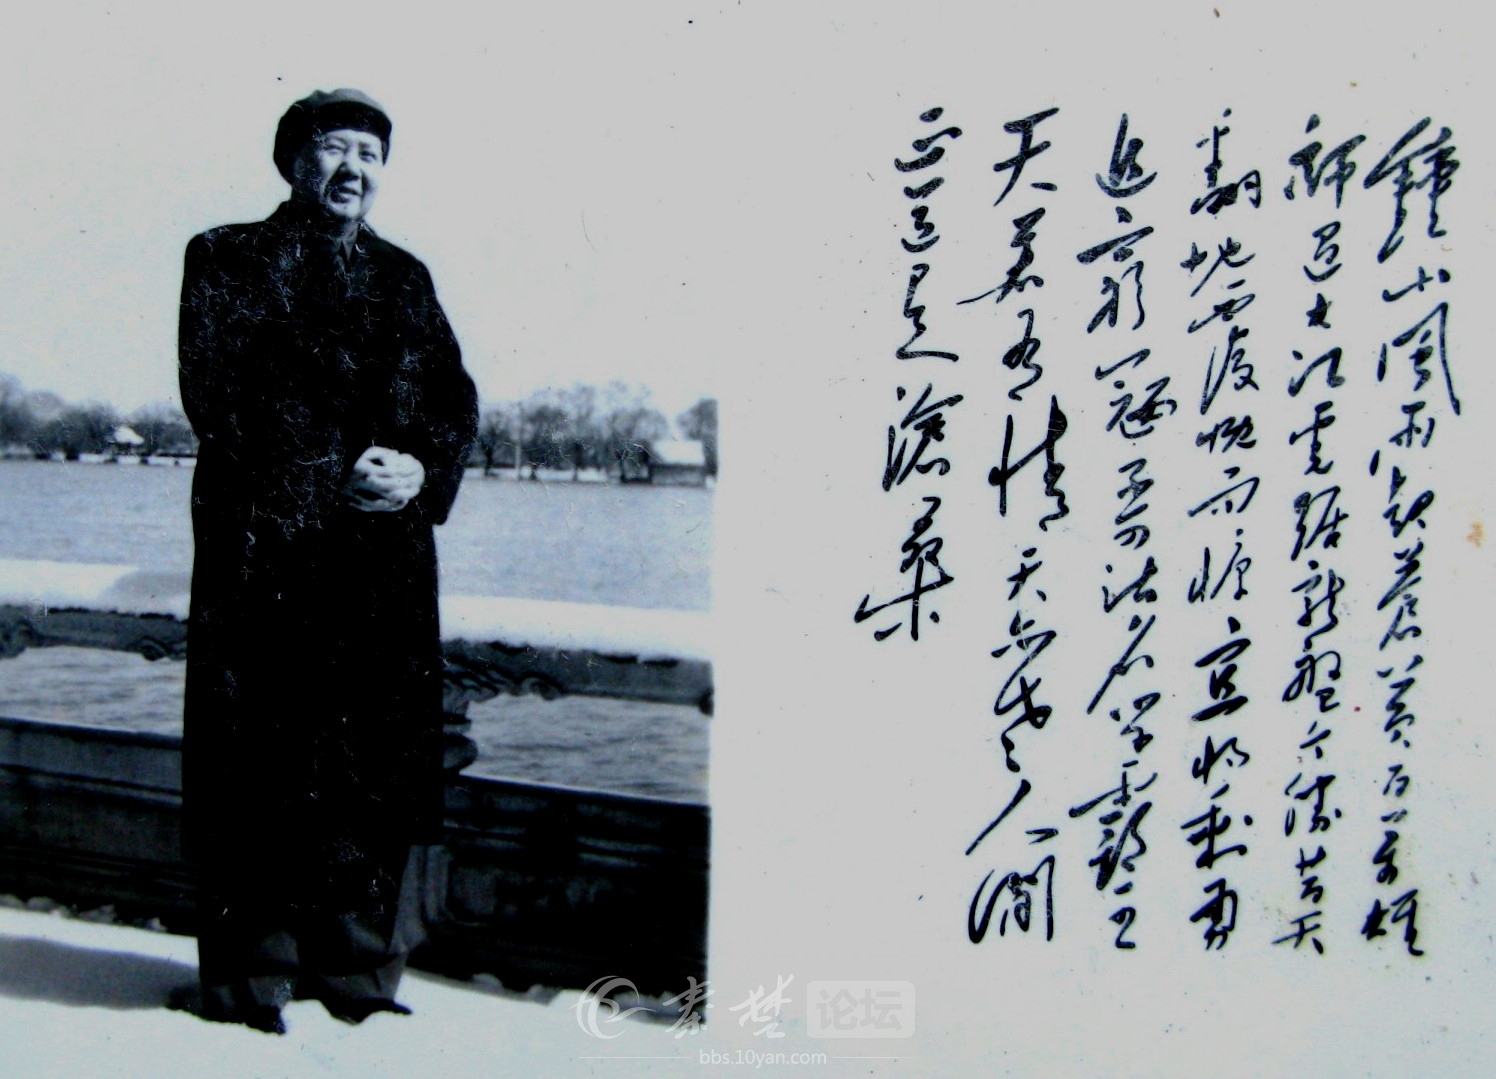 鐘山風雨起蒼黃百万雄
師過大江虎踞龍盤今勝昔天
翻地覆慨而慷宜将剩勇
追窮寇不可沽名学霸王
天若有情天亦老人間
正道是滄桑
秦楚论坛
bbs.10yan.com